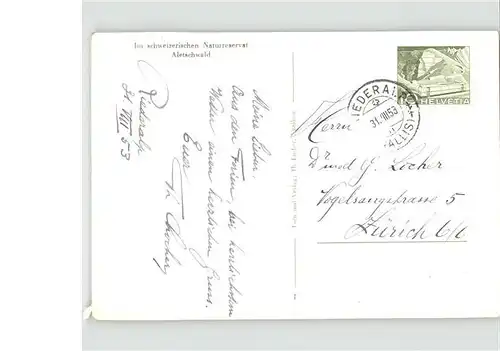 Im schweizerischen Naturreservat
Aletschwald
Riederalp
31. VIII 53
Meine Lieben.
Aus den Ferien, bei herrlichstem
Wetter einen herzlichen Gruss.
Euer
Th. Locher
HELVETIA
RIEDERALP
31.VIII.53
(WALLIS)
Herrn
Dr und G. Locher
Vogelsangstrasse 5
Zürich 6/6